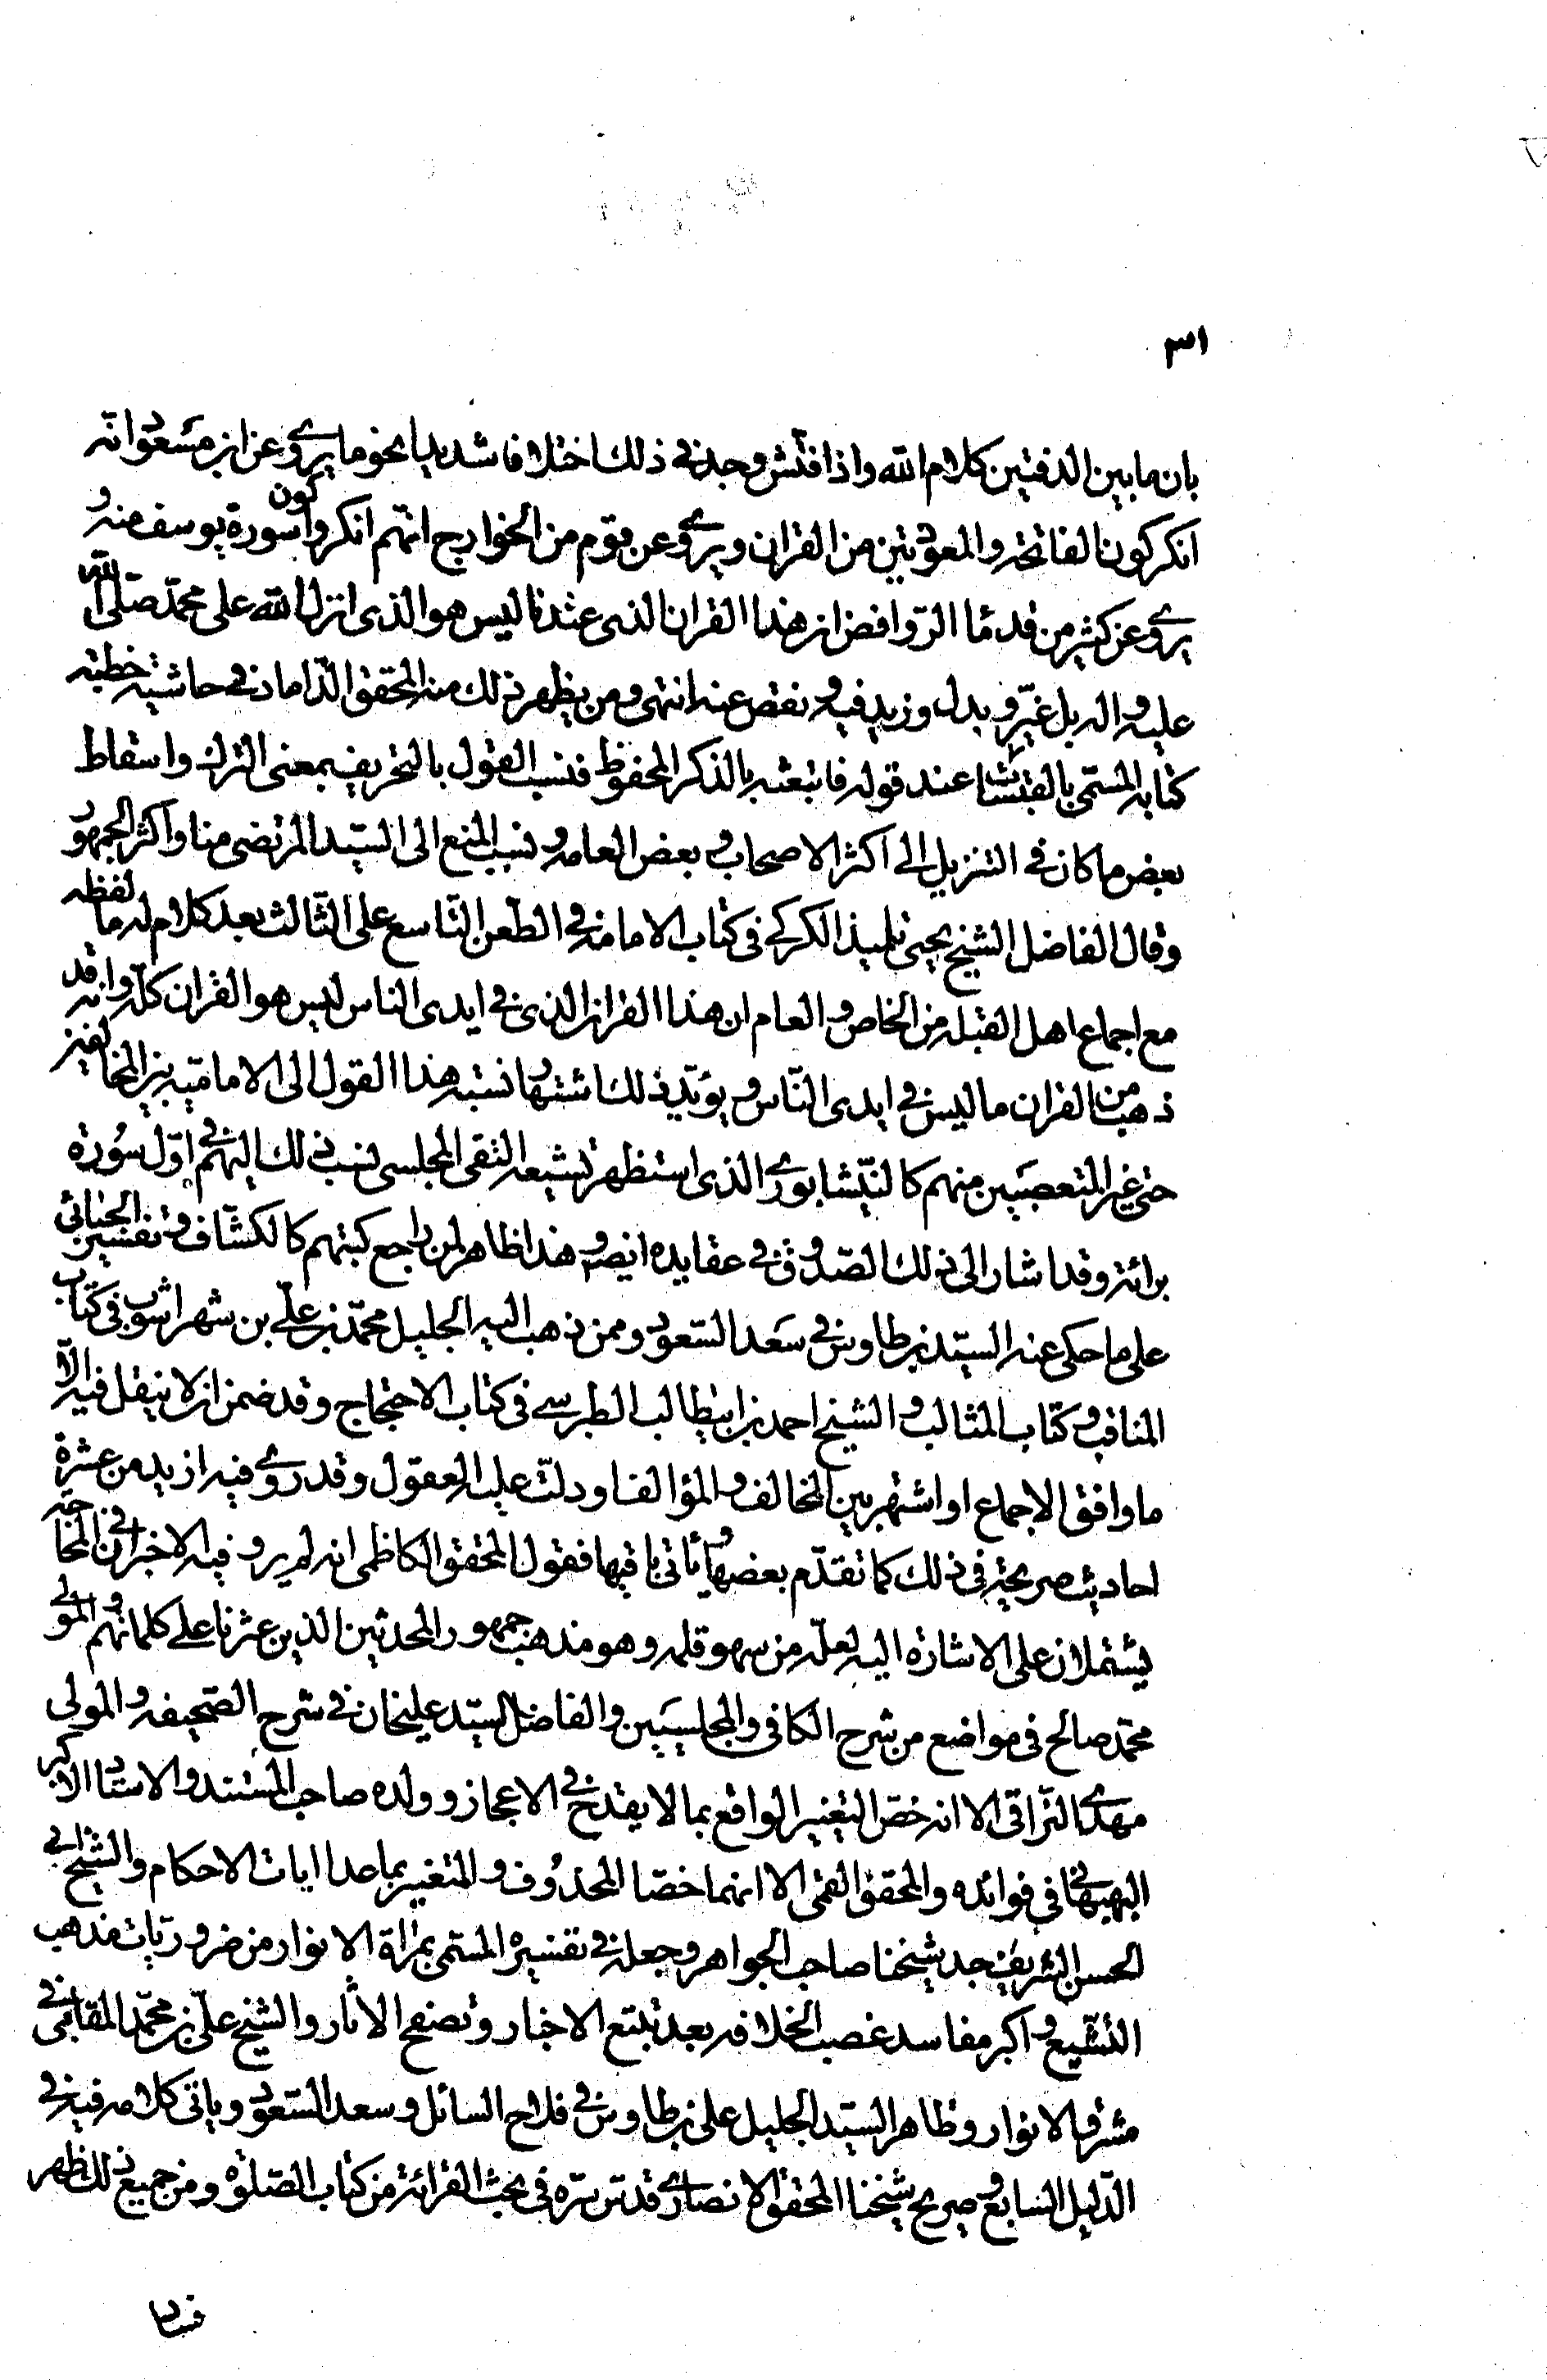 ٣١
بان ما بين الدفتين كلام الله واذا فتش وجد في ذلك اختلافا شديدا نحو ما يروى عن ابن مسعود انه
انكر كون الفاتحة والمعوذتين من القران ويروى عن قوم من الخوارج انهم انكروا كون سورة يوسف منه و
يروى عن كثير من قدماء الروافض ان هذا القران الذى عندنا ليس هو الذى انزل الله على محمد صلى الله
عليه واله بل غيّر وبدل وزيد فيه ونقص عنه انتهى وممن يظهر ذلك منه المحقق الداماد في حاشية خطبة
كتابه المسمى بالقبسات عند قوله فابتعثه بالذكر المحفوظ فنسب القول بالتحريف بمعنى الترك واسقاط
بعض ما كان في التنزيل الى اكثر الاصحاب وبعض العامه ونسب المنع الى السيد المرتضى منا واكثر الجمهور
وقال الفاضل الشيخ يحيى تلميذ الكركى فى كتاب الامامة في الطعن التاسع على الثالث بعد كلام له ما لفظه
مع اجماع اهل القبلة من الخاص والعام ان هذا القران الذى في ايدى الناس ليس هو القران كله وانه قد
ذهب من القران ما ليس في ايدى الناس ويؤيد ذلك اشتهار نسبة هذا القول الى الامامية بين المخالفين
حتى غير المتعصبين منهم كالنيشابورى الذى استظهر تشيعه التقى المجلسى نسب ذلك اليهم في اول سورة
برائة وقد اشار الى ذلك الصدوق في عقايده ايضو هذا ظاهر لمن راجع كتبهم كالكشاف وتفسير الجبائى
على ما حكى عنه السيد بن طاوس في سعد السعود وممن ذهب اليه الجليل محمد بن على بن شهراشوب فى كتاب
المناقب وكتاب المثالب والشيخ احمد بن ابيطالب الطبرسى فى كتاب الاحتجاج وقد ضمن ان لا ينقل فيه الا
ما وافق الاجماع او اشتهر بين المخالف والمؤالف او دلت عليه العقول وقد روى فيه ازيد من عشرة
احاديث صريحة فى ذلك كما تقدم بعضها ويأتى باقيها فقول المحقق الكاظمى انه لم يرو فيه الا خبران في المحاجة
يشتملان على الاشارة اليه لعله من سهو قلمه وهو مذهب جمهور المحدثين الذين عثرنا على كلماتهم والمولى
محمد صالح فى مواضع من شرح الكافى والمجلسيين والفاضل السيد عليخان في شرح الصحيفه والمولى
مهدى النراقى الا انه خص التغيير الواقع بما لا يقدح في الاعجاز وولده صاحب المستند والاستاد الاكبر
البهبهانى فى فوائده والمحقق القمى الا انهما خصّا المحذوف والمتغير بما عدا ايات الاحكام والشيخ ابى
الحسن الشريف جد شيخنا صاحب الجواهر وجعله في تفسيره المسمى بمراة الانوار من ضروريات مذهب
التشيع واكبر مفاسد غصب الخلافه بعد تتبع الاخبار وتصفح الاثار والشيخ على بن محمد المقابى في
مشرق الانوار وظاهر السيد الجليل على بن طاوس في فلاح السائل وسعد السعود وياتى كلامه فيه في
الدليل السابع وصريح شيخنا المحقق الانصارى قدس سره فى بحث القرائة من كتاب الصلوة ومن جميع ذلك ظهر
فساد